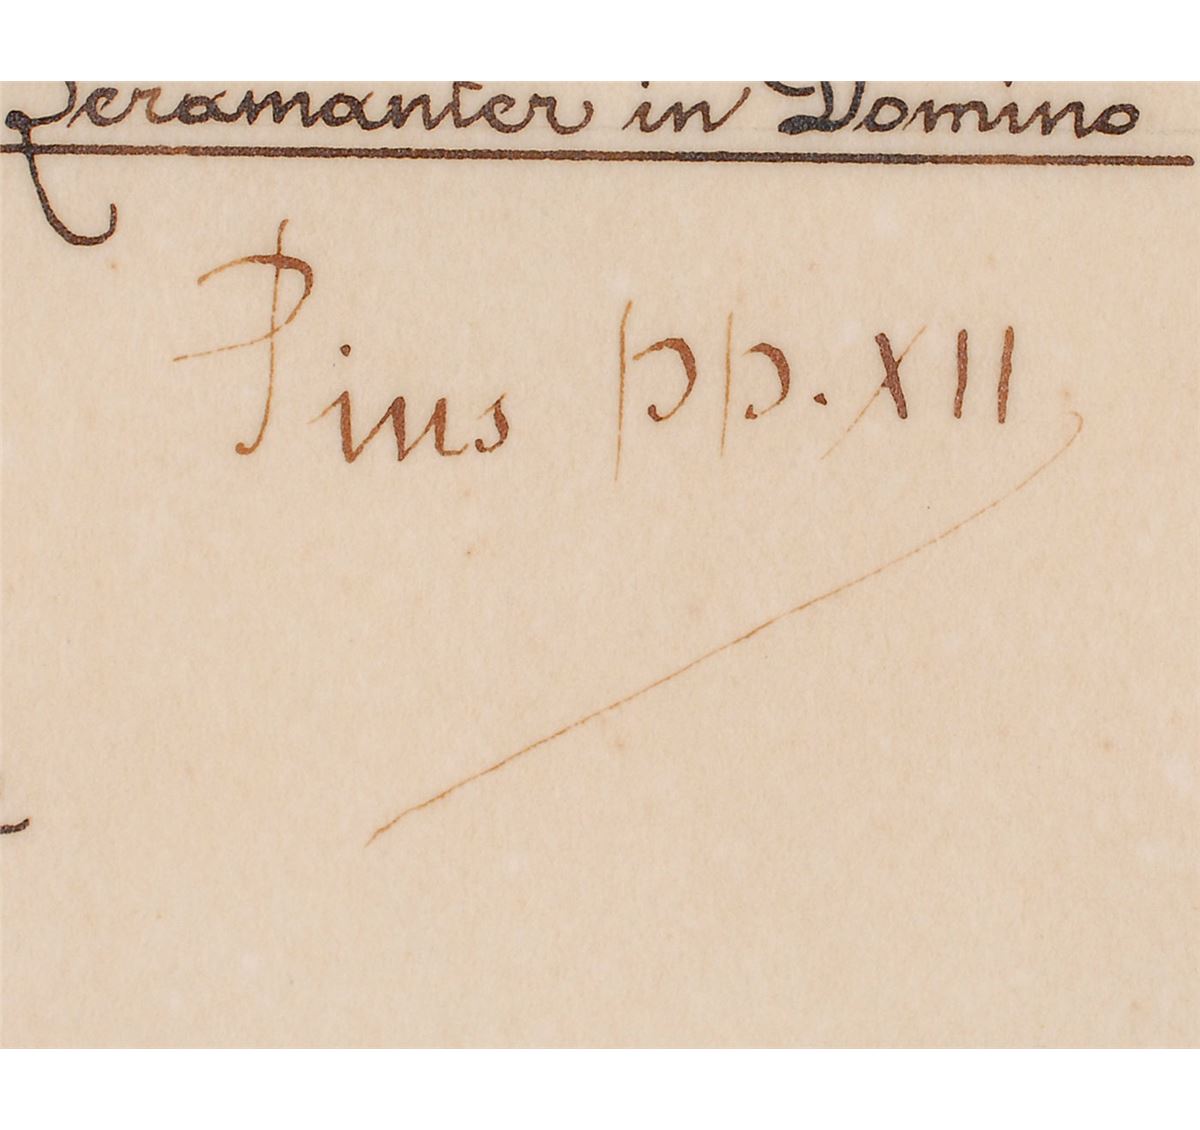 Peramanter in Domino
Pius pp. XII